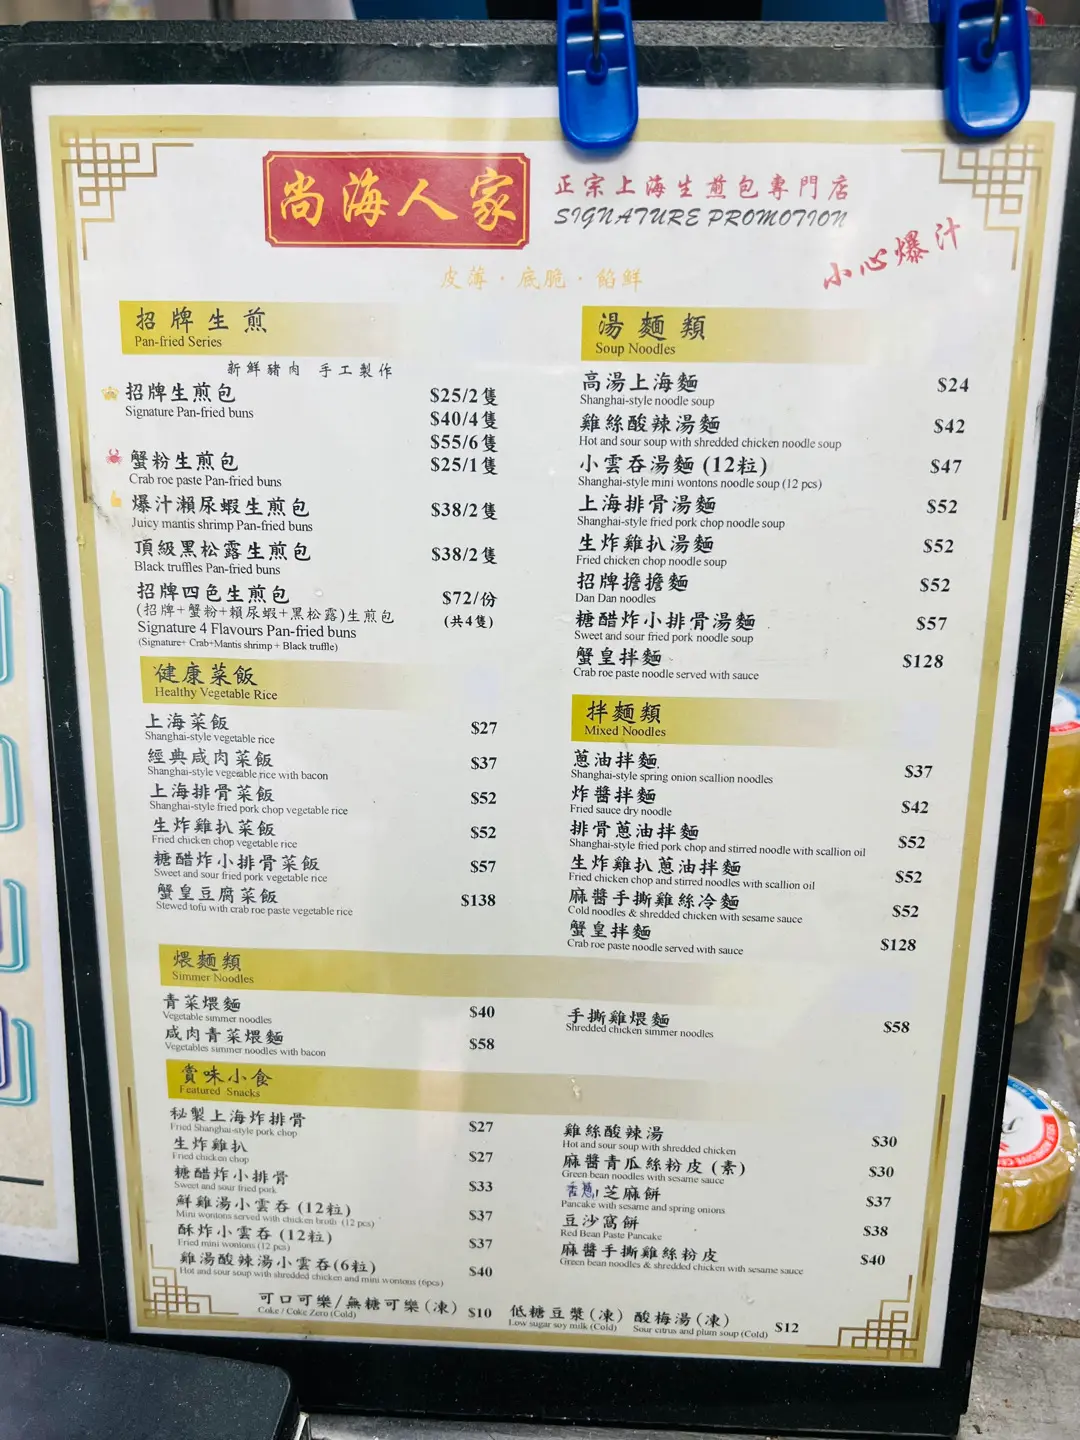 尚海人家
正宗上海生煎包專門店
SIGNATURE PROMOTION
小心爆汁
皮薄·底脆·餡鮮
招牌生煎
Pan-fried Series
新鮮豬肉 手工製作
招牌生煎包 $25/2隻
Signature Pan-fried buns
$40/4隻
$55/6隻
蟹粉生煎包 $25/1隻
Crab roe paste Pan-fried buns
爆汁瀨尿蝦生煎包 $38/2隻
Juicy mantis shrimp Pan-fried buns
頂級黑松露生煎包 $38/2隻
Black truffles Pan-fried buns
招牌四色生煎包 $72/份
(招牌+蟹粉+瀨尿蝦+黑松露)生煎包 (共4隻)
Signature 4 Flavours Pan-fried buns
(Signature+ Crab+Mantis shrimp + Black truffle)
健康菜飯
Healthy Vegetable Rice
上海菜飯 $27
Shanghai-style vegetable rice
經典咸肉菜飯 $37
Shanghai-style vegetable rice with bacon
上海排骨菜飯 $52
Shanghai-style fried pork chop vegetable rice
生炸雞扒菜飯 $52
Fried chicken chop vegetable rice
糖醋炸小排骨菜飯 $57
Sweet and sour fried pork vegetable rice
蟹皇豆腐菜飯 $138
Stewed tofu with crab roe paste vegetable rice
湯麵類
Soup Noodles
高湯上海麵 $24
Shanghai-style noodle soup
雞絲酸辣湯麵 $42
Hot and sour soup with shredded chicken noodle soup
小雲吞湯麵 (12粒) $47
Shanghai-style mini wontons noodle soup (12 pcs)
上海排骨湯麵 $52
Shanghai-style fried pork chop noodle soup
生炸雞扒湯麵 $52
Fried chicken chop noodle soup
招牌擔擔麵 $52
Dan Dan noodles
糖醋炸小排骨湯麵 $57
Sweet and sour fried pork noodle soup
蟹皇拌麵 $128
Crab roe paste noodle served with sauce
拌麵類
Mixed Noodles
蔥油拌麵 $37
Shanghai-style spring onion scallion noodles
炸醬拌麵 $42
Fried sauce dry noodle
排骨蔥油拌麵 $52
Shanghai-style fried pork chop and stirred noodle with scallion oil
生炸雞扒蔥油拌麵 $52
Fried chicken chop and stirred noodles with scallion oil
麻醬手撕雞絲冷麵 $52
Cold noodles & shredded chicken with sesame sauce
蟹皇拌麵 $128
Crab roe paste noodle served with sauce
煨麵類
Simmer Noodles
青菜煨麵 $40
Vegetable simmer noodles
咸肉青菜煨麵 $58
Vegetables simmer noodles with bacon
手撕雞煨麵 $58
Shredded chicken simmer noodles
賞味小食
Featured Snacks
秘製上海炸排骨 $27
Fried Shanghai-style pork chop
生炸雞扒 $27
Fried chicken chop
糖醋炸小排骨 $33
Sweet and sour fried pork
鮮雞湯小雲吞 (12粒) $37
Mini wontons served with chicken broth (12 pcs)
酥炸小雲吞 (12粒) $37
Fried mini wontons (12 pcs)
雞湯酸辣湯小雲吞(6粒) $40
Hot and sour soup with shredded chicken and mini wontons (6pcs)
雞絲酸辣湯 $30
Hot and sour soup with shredded chicken
麻醬青瓜絲粉皮 (素) $30
Green bean noodles with sesame sauce
香蔥芝麻餅 $37
Pancake with sesame and spring onions
豆沙窩餅 $38
Red Bean Paste Pancake
麻醬手撕雞絲粉皮 $40
Green bean noodles & shredded chicken with sesame sauce
可口可樂/無糖可樂(凍) $10 低糖豆漿(凍) 酸梅湯(凍) $12
Coke / Coke Zero (Cold) Low sugar soy milk (Cold) Sour citrus and plum soup (Cold)